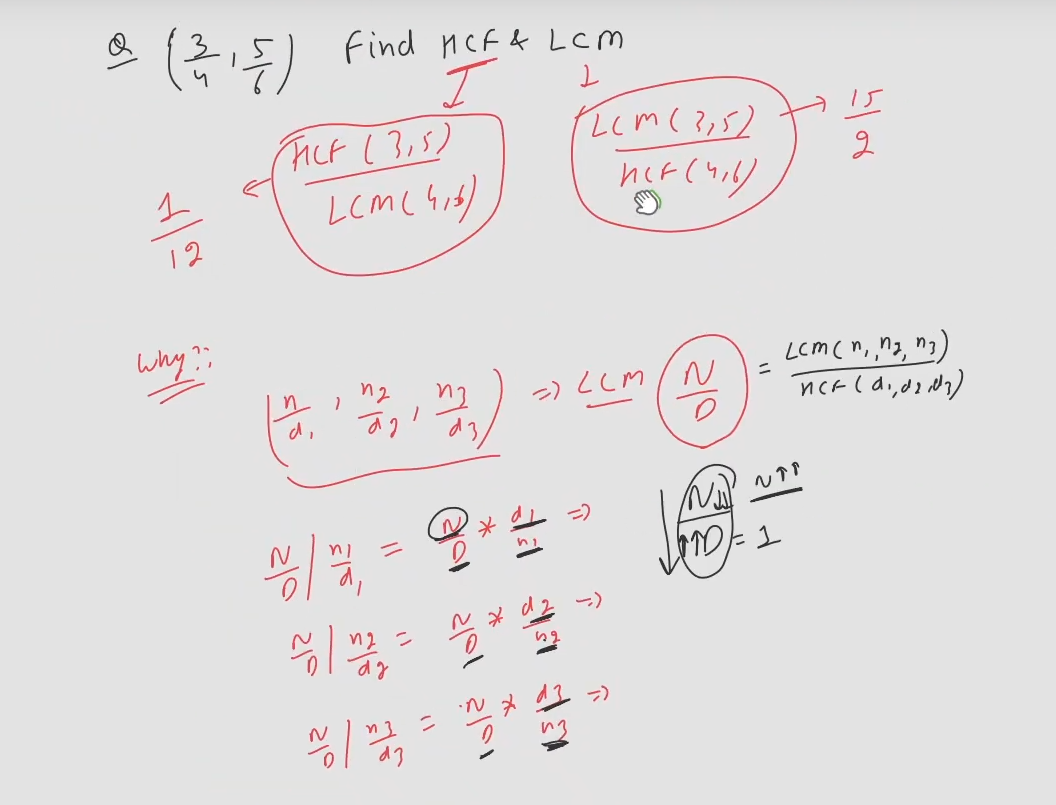 Q (3/4, 5/6) Find HCF & LCM
HCF (3,5) / LCM (4,6)
1/12
LCM (3,5) / HCF (4,6)
15/2
Why??
(n/d1, n2/d2, n3/d3) => LCM (N/D) = LCM(n1,n2,n3) / HCF(d1,d2,d3)
N/D | n1/d1 = N/D * d1/n1 =>
N↓↓ / ↑↑D = 1
N↑↑
N/D | n2/d2 = N/D * d2/n2 =>
N/D | n3/d3 = N/D * d3/n3 =>